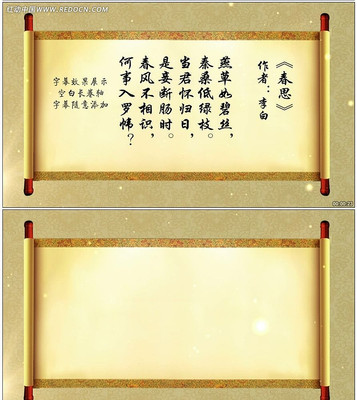 红动中国 WWW.REDOCN.COM
《春思》
作者：李白
燕草如碧丝，
秦桑低绿枝。
当君怀归日，
是妾断肠时。
春风不相识，
何事入罗帏？
字幕效果展示
空白长卷轴
字幕随意添加
00:00:21